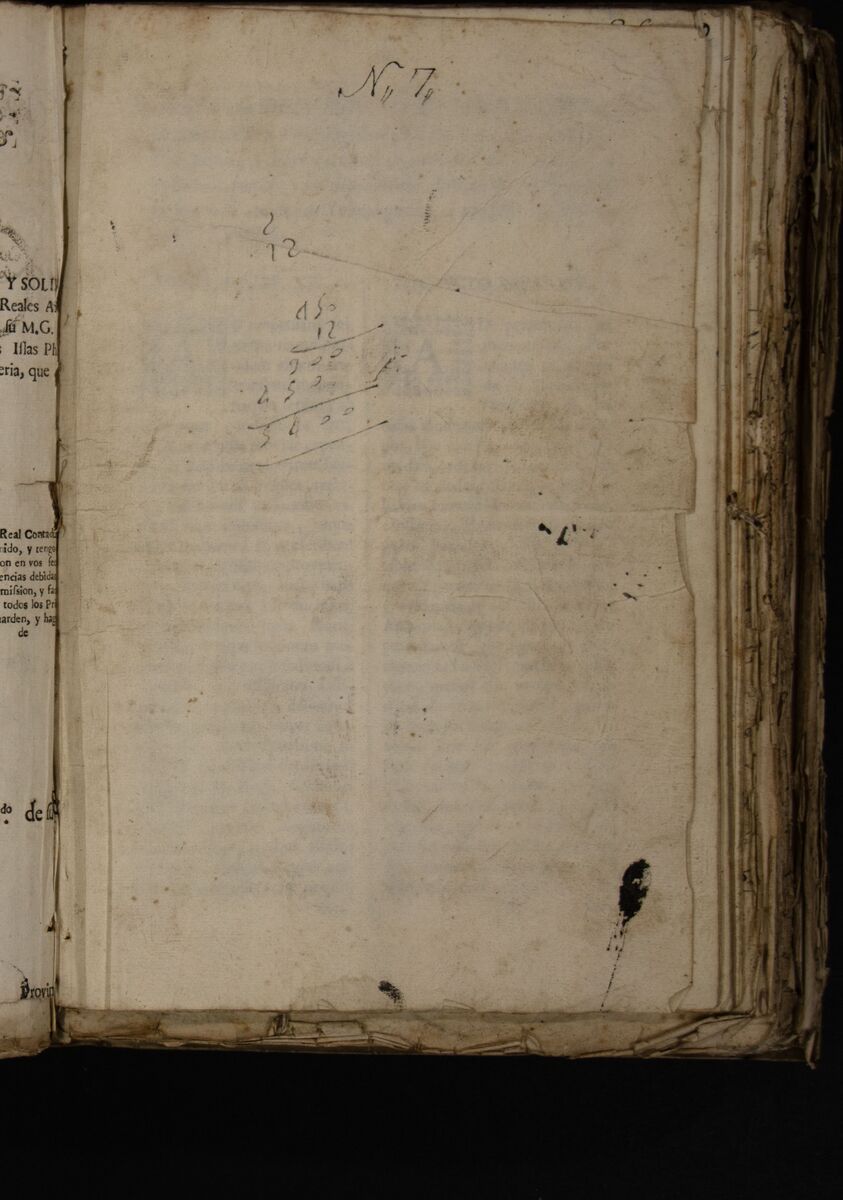 Y SOLI
Reales A
ſu M.G.
Iſlas Ph
eria, que
Real Contad
rido, y tengo
on en vos
encias debidas
miſsion, y fa
todos los Pri
arden, y hag
de
do. de
Provin
N,, 7,,
2
12
450
12
900
450
5400